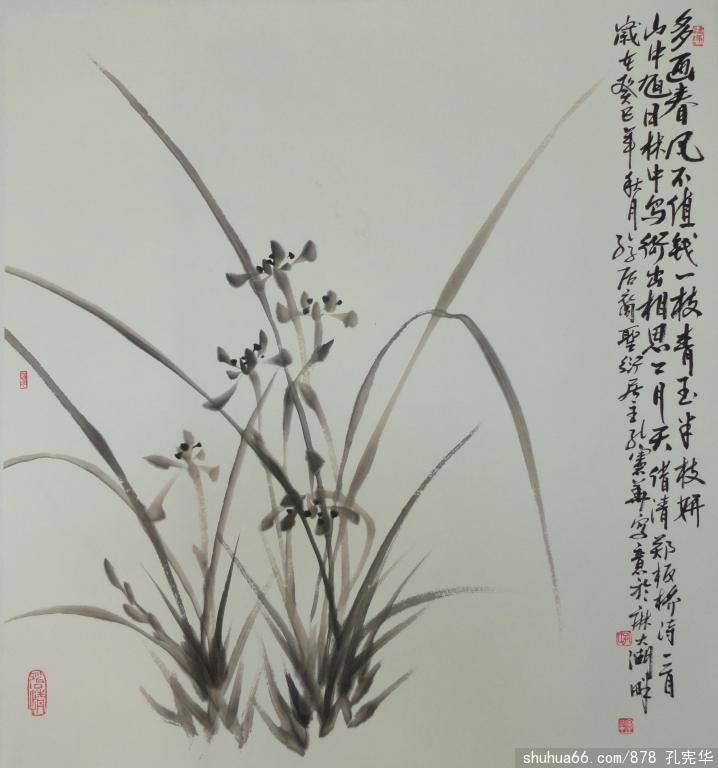 多画春风不值钱一枝青玉半枝妍
山中旭日林中鸟衔出相思二月天借清郑板桥诗一首
歲在癸巳年秋月后裔聖衍居主孔憲華写意於麻大湖畔
shuhua66.com/878 孔宪华